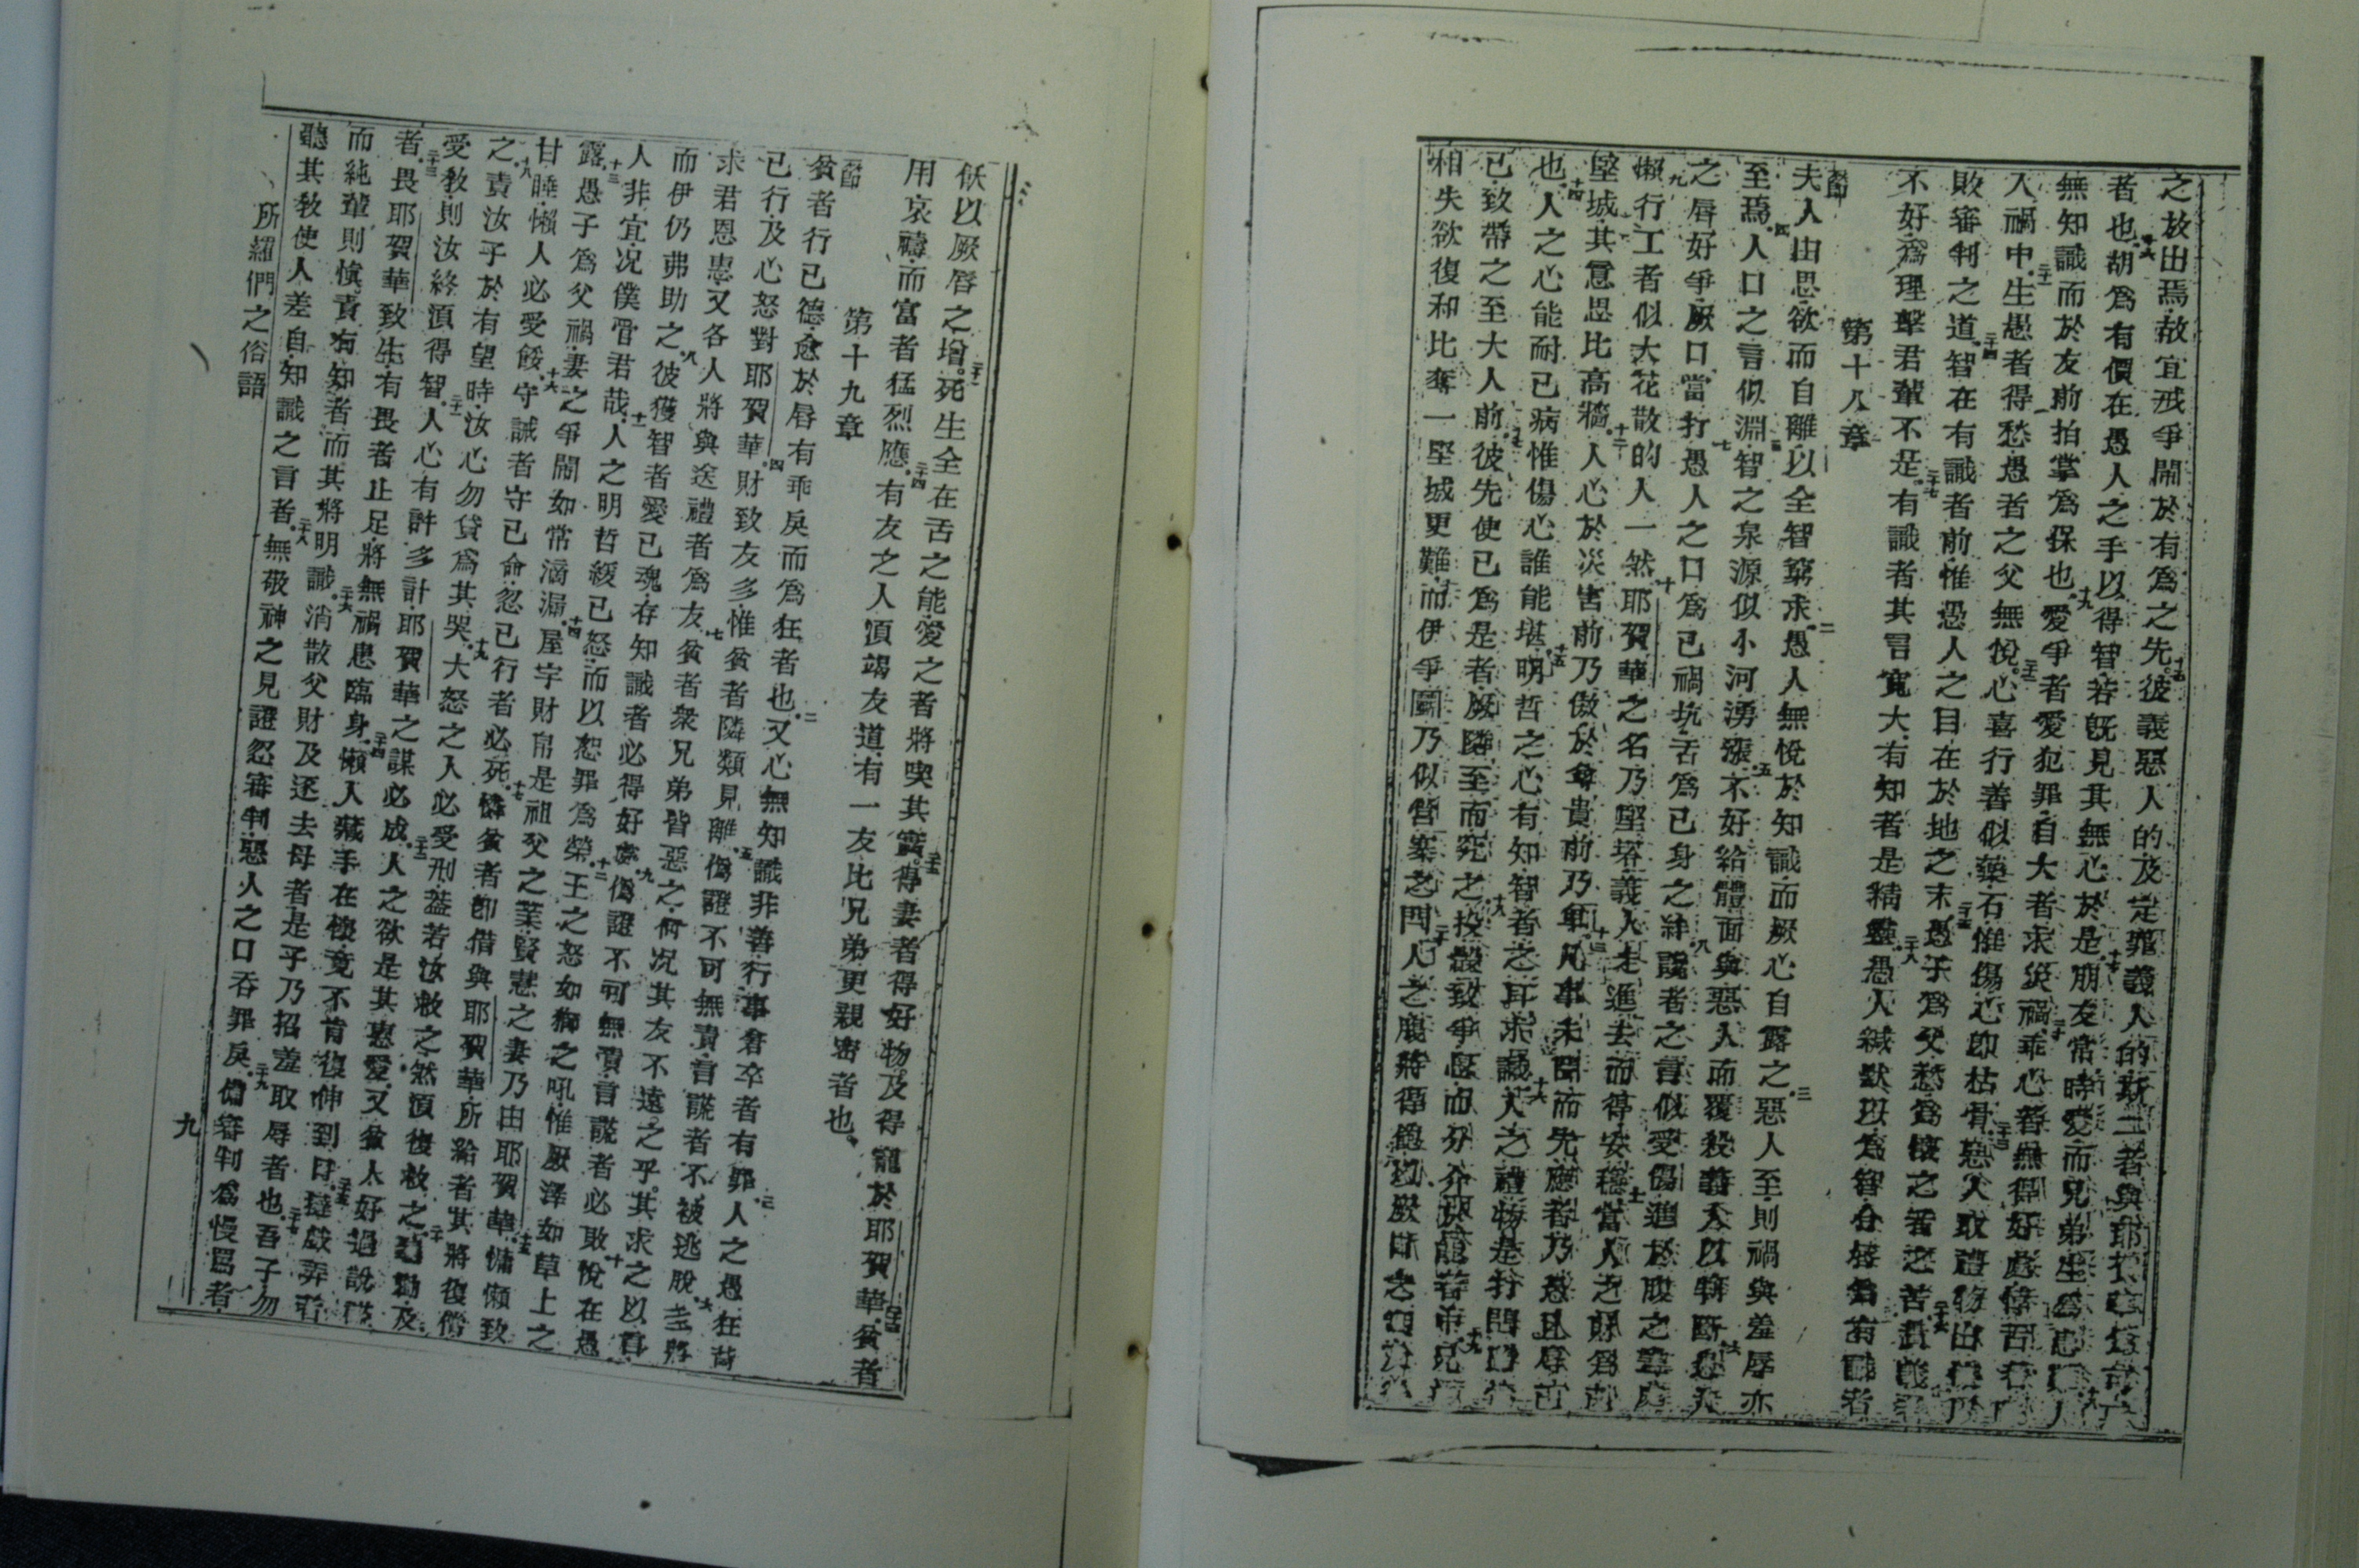 之放出焉故宜戒爭鬧於有爲之先十五彼義惡人的及定罪義人的斯二者與耶
者也十六胡爲有價在愚人之手以得智若旣見其無心於是十七朋友常時愛而兄弟生爲
無知識而於友前拍掌爲保也十九愛爭者愛犯罪自大者求災禍二十乖心者無得好處
人禍中二十一生愚者得愁愚者之父無悅二十二心喜行善似藥石惟傷心卽枯骨二十三惡人取禮物出
敗審判之道二十四智在有識者前惟愚人之目在於地之末二十五愚子爲父愁爲懷之者之苦二十六
不好爲理擊君輩不是二十七有識者其言寬大有知者是精靈二十八愚人緘默以爲智合唇爲有識者
第十八章
夫人由思欲而自離以全智窮求二愚人無悅於知識而厥心自露之三惡人至則禍與羞辱亦
至焉四人口之言似淵智之泉源似小河湧漲五不好給體面與惡人而覆殺義人以審斷六愚夫
之唇好爭厥口當打七愚人之口爲已禍坑舌爲已身之絆八說者之言似受傷進於腹之
九懶行工者似大花散的人一然十耶賀華之名乃堅塔義人走進去而得安穩十一富人之財爲
堅城其意思比高牆十二人心於災害前乃傲於尊貴前乃卑十三凡事未聞而先應者乃愚且辱
也十四人之心能耐已病惟傷心誰能堪十五明哲之心有知智者之耳求識十六人之禮物是
已致帶之至大人前十七彼先使已爲是者厥隣至而究之十八投骰致爭息而分介於
相失欲復和比奪一堅城更難而伊爭鬭乃似營寨之閂二十人之腹將得飽
伙以厥唇之增二十一死生全在舌之能愛之者將喫其實二十二得妻者得好物及得寵於耶賀華二十三貧者
用哀禱而富者猛烈應二十四有友之人須竭友道有一友比兄弟更親密者也
第十九章
貧者行已德愈於唇有乖戾而爲狂者也二又心無知識非善行事奢卒者有罪三人之愚狂
已行及心怒對耶賀華四財致友多惟貧者隣類見離五僞證不可無責言謊者不被逃脫六
求君恩惠又各人將與送禮者爲友七貧者衆兄弟皆惡之何况其友不遠之乎其求之以言
而伊仍弗助之八彼獲智者愛已魂存知識者必得好處九僞證不可無責言謊者必敗十悅在愚
人非宜况僕管君哉十一人之明哲緩已怒而以恕罪爲榮十二王之怒如獅之吼惟厥澤如草上之
露十三愚子爲父禍妻之爭鬧如常滴漏十四屋宇財帛是祖父之業賢慧之妻乃由耶賀華十五慵懶致
甘睡懶人必受餒十六守誡者守已命忽已行者必死十七憐貧者卽借與耶賀華所給者其將復償
之十八責汝子於有望時汝心勿貸爲其哭十九大怒之人必受刑葢若汝救之然須復救之二十勸及
受敎則汝終須得智二十一人心有許多計耶賀華之謀必成二十二人之欲是其惠愛又貧人好過說謊
者二十三畏耶賀華致生有畏者止足將無禍患臨身二十四懶人藏手在懷竟不肯復伸到口二十五撻戲弄者
而純輩則愼責有知者而其將明識二十六消散父財及逐去母者是子乃招羞取辱者也二十七吾子勿
聽其敎使人差自知識之言者二十八無敬神之見證忽審判惡人之口吞罪戾二十九備審判爲慢罵者
所羅們之俗語
九